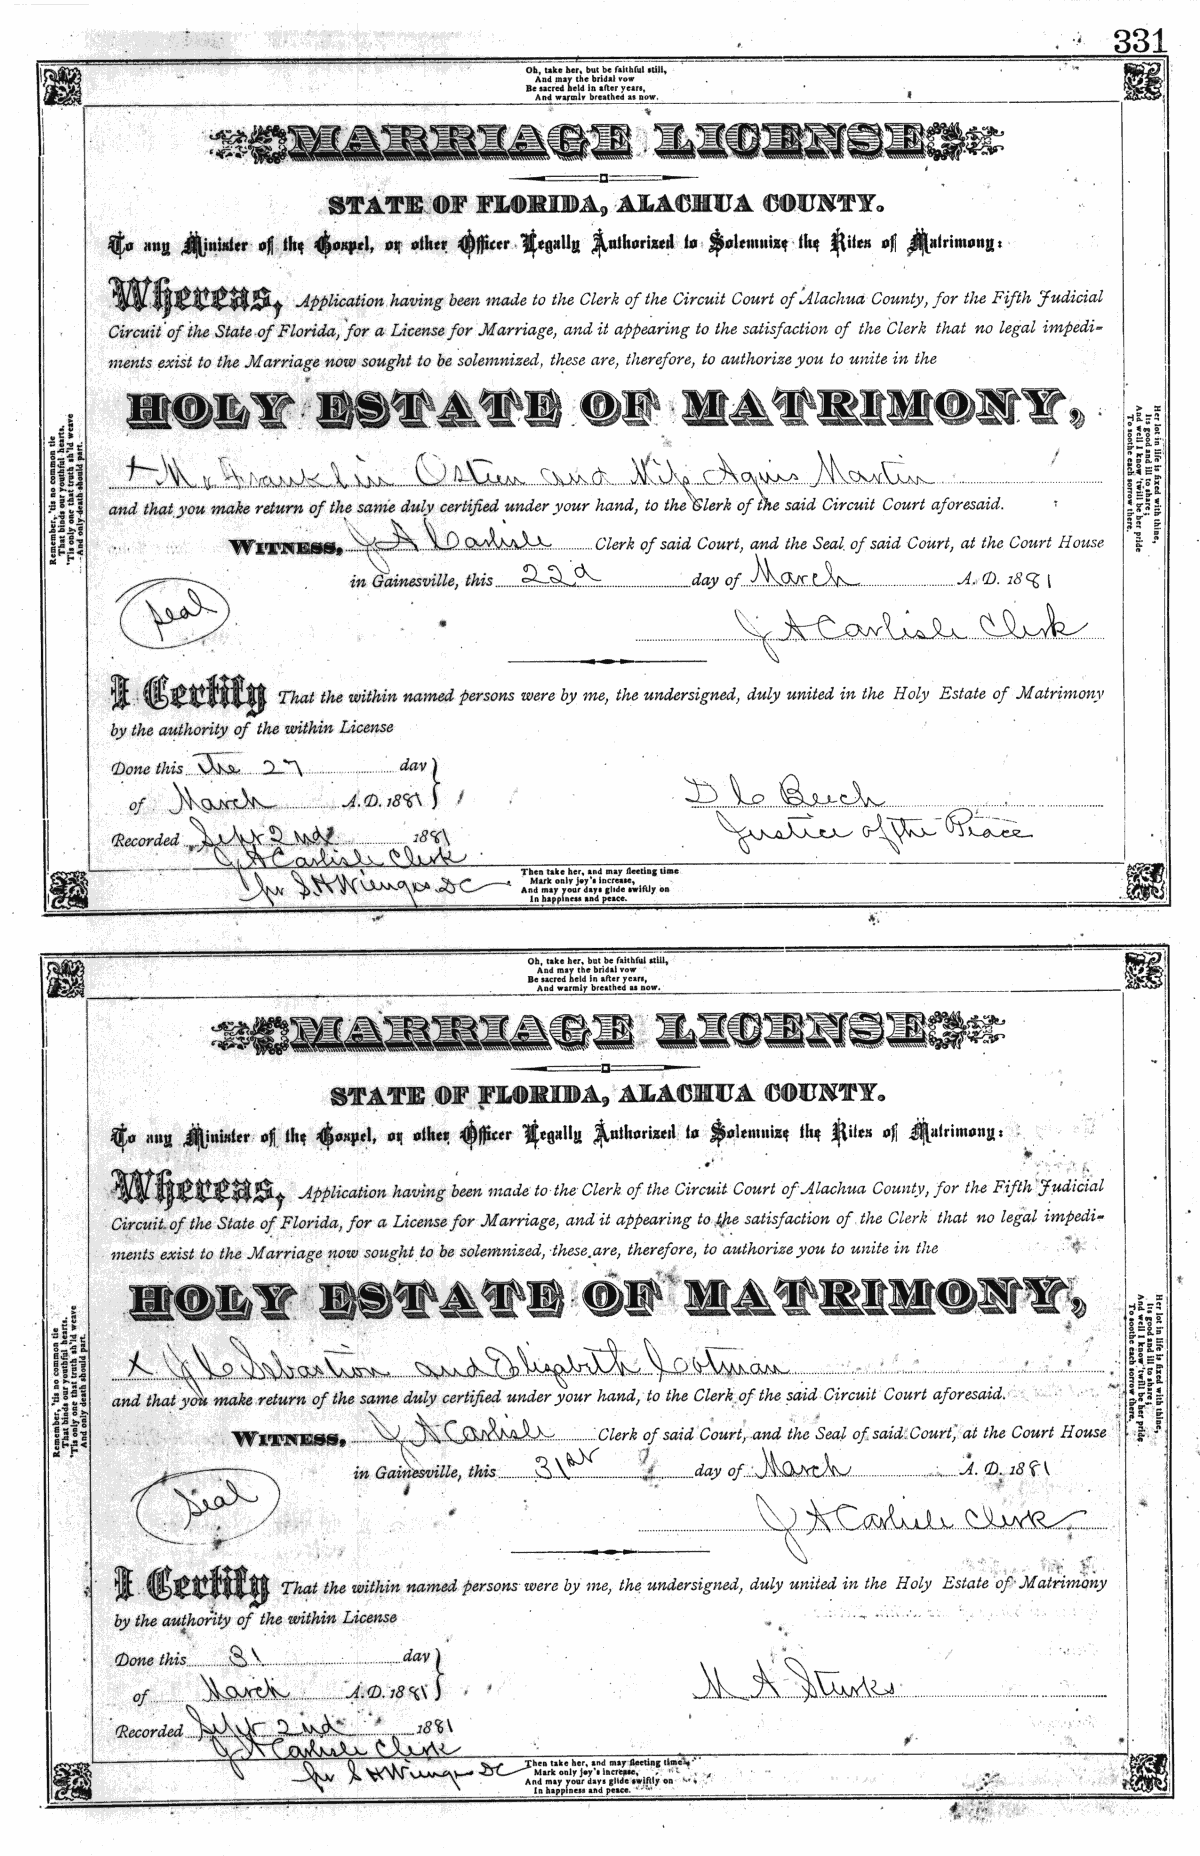 331
Oh, take her, but be faithful still,
And may the bridal vow
Be sacred held in after years,
And warmly breathed as now.
MARRIAGE LICENSE
STATE OF FLORIDA, ALACHUA COUNTY.
To any Minister of the Gospel, or other Officer Legally Authorized to Solemnize the Rites of Matrimony:
Whereas, Application having been made to the Clerk of the Circuit Court of Alachua County, for the Fifth Judicial
Circuit of the State of Florida, for a License for Marriage, and it appearing to the satisfaction of the Clerk that no legal impedi-
ments exist to the Marriage now sought to be solemnized, these are, therefore, to authorize you to unite in the
HOLY ESTATE OF MATRIMONY,
x Mr Franklin Osteen and Miss Agnes Martin
and that you make return of the same duly certified under your hand, to the Clerk of the said Circuit Court aforesaid.
WITNESS, J A Carlisle Clerk of said Court, and the Seal of said Court, at the Court House
in Gainesville, this 22d day of March A. D. 1881
Seal
J A Carlisle Clerk
I Certify That the within named persons were by me, the undersigned, duly united in the Holy Estate of Matrimony
by the authority of the within License
Done this the 27 day
of March A. D. 1881
D C Beech
Justice of the Peace
Recorded Sept 2nd 1881
J A Carlisle Clerk
pr S H Wienges DC
Then take her, and may fleeting time
Mark only joy's increase,
And may your days glide swiftly on
In happiness and peace.
Remember, 'tis no common tie
That binds our youthful hearts.
'Tis only one that truth sh'ld weave
And only death should part.
Her lot in life is fixed with thine,
Its good and ill to share;
And well I know 'twill be her pride
To soothe each sorrow there.
Oh, take her, but be faithful still,
And may the bridal vow
Be sacred held in after years,
And warmly breathed as now.
MARRIAGE LICENSE
STATE OF FLORIDA, ALACHUA COUNTY.
To any Minister of the Gospel, or other Officer Legally Authorized to Solemnize the Rites of Matrimony:
Whereas, Application having been made to the Clerk of the Circuit Court of Alachua County, for the Fifth Judicial
Circuit of the State of Florida, for a License for Marriage, and it appearing to the satisfaction of the Clerk that no legal impedi-
ments exist to the Marriage now sought to be solemnized, these are, therefore, to authorize you to unite in the
HOLY ESTATE OF MATRIMONY,
x J C Sebastion and Elizabeth Cotman
and that you make return of the same duly certified under your hand, to the Clerk of the said Circuit Court aforesaid.
WITNESS, J A Carlisle Clerk of said Court, and the Seal of said Court, at the Court House
in Gainesville, this 31st day of March A. D. 1881
Seal
J A Carlisle Clerk
I Certify That the within named persons were by me, the undersigned, duly united in the Holy Estate of Matrimony
by the authority of the within License
Done this 31 day
of March A. D. 1881
M A Sturks
Recorded Sept 2nd 1881
J A Carlisle Clerk
pr S H Wienges DC
Then take her, and may fleeting time
Mark only joy's increase,
And may your days glide swiftly on
In happiness and peace.
Remember, 'tis no common tie
That binds our youthful hearts.
'Tis only one that truth sh'ld weave
And only death should part.
Her lot in life is fixed with thine,
Its good and ill to share;
And well I know 'twill be her pride
To soothe each sorrow there.